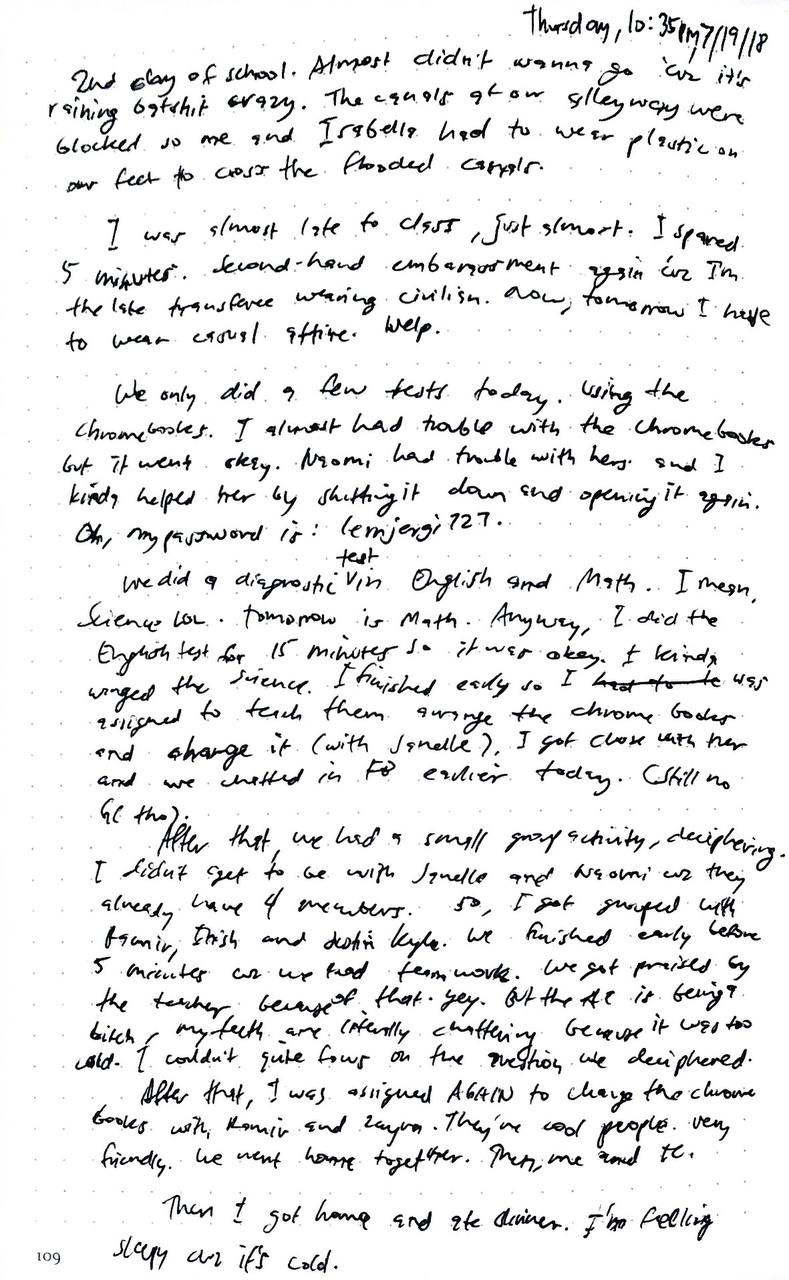 Thursday, 10:35pm, 7/19/18
2nd day of school. Almost didn't wanna go 'cuz it's
raining batshit crazy. The canals at our alleyway were
blocked so me and Isabella had to wear plastic on
our feet to cross the flooded canals.
I was almost late to class, just almost. I spared
5 minutes. Second-hand embarrassment again 'cuz I'm
the late transferee wearing civilian. Now, tomorrow I have
to wear casual attire. Help.
We only did a few tests today. Using the
chromebooks. I almost had trouble with the chromebooks
but it went okay. Naomi had trouble with hers and I
kinda helped her by shutting it down and opening it again.
Oh, my password is: lemjergi727.
We did a diagnostic test in English and Math. I mean,
Science LOL. Tomorrow is Math. Anyway, I did the
English test for 15 minutes so it was okay. I kinda
winged the science. I finished early so I had to be was
assigned to teach them arrange the chrome books
and charge it (with Janelle). I got close with her
and we chatted in FB earlier today. (Still no
GC tho).
After that, we had a small group activity, deciphering.
I didn't get to be with Janelle and Naomi cuz they
already have 4 members. So, I got grouped with
Ramir, Irish and Kyla. We finished early before
5 minutes cuz we had teamwork. We got praised by
the teacher because of that. yey. But the AC is being a
bitch, my teeth are literally chattering because it was too
cold. I couldn't quite focus on the question we deciphered.
After that, I was assigned AGAIN to charge the chrome
books with Ramir and Zayra. They're cool people. very
friendly. We went home together. Then, me and
Then I got home and ate dinner. I'm feeling
sleepy cuz it's cold.
109